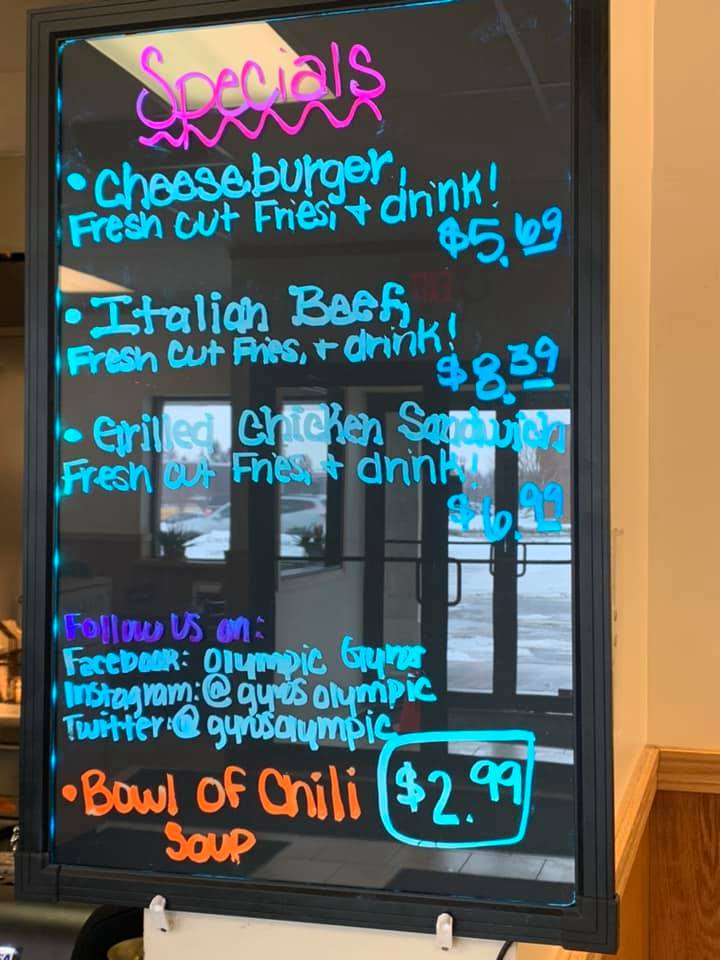 Specials
• Cheeseburger,
Fresh cut Fries, + drink!
$5.69
• Italian Beef,
Fresh cut Fries, + drink!
$8.39
• Grilled Chicken Sandwich
Fresh cut Fries, + drink!
$6.99
Follow us on:
Facebook: Olympic Gyros
Instagram: @gyrosolympic
Twitter: @gyrosolympic
• Bowl of Chili $2.99
Soup